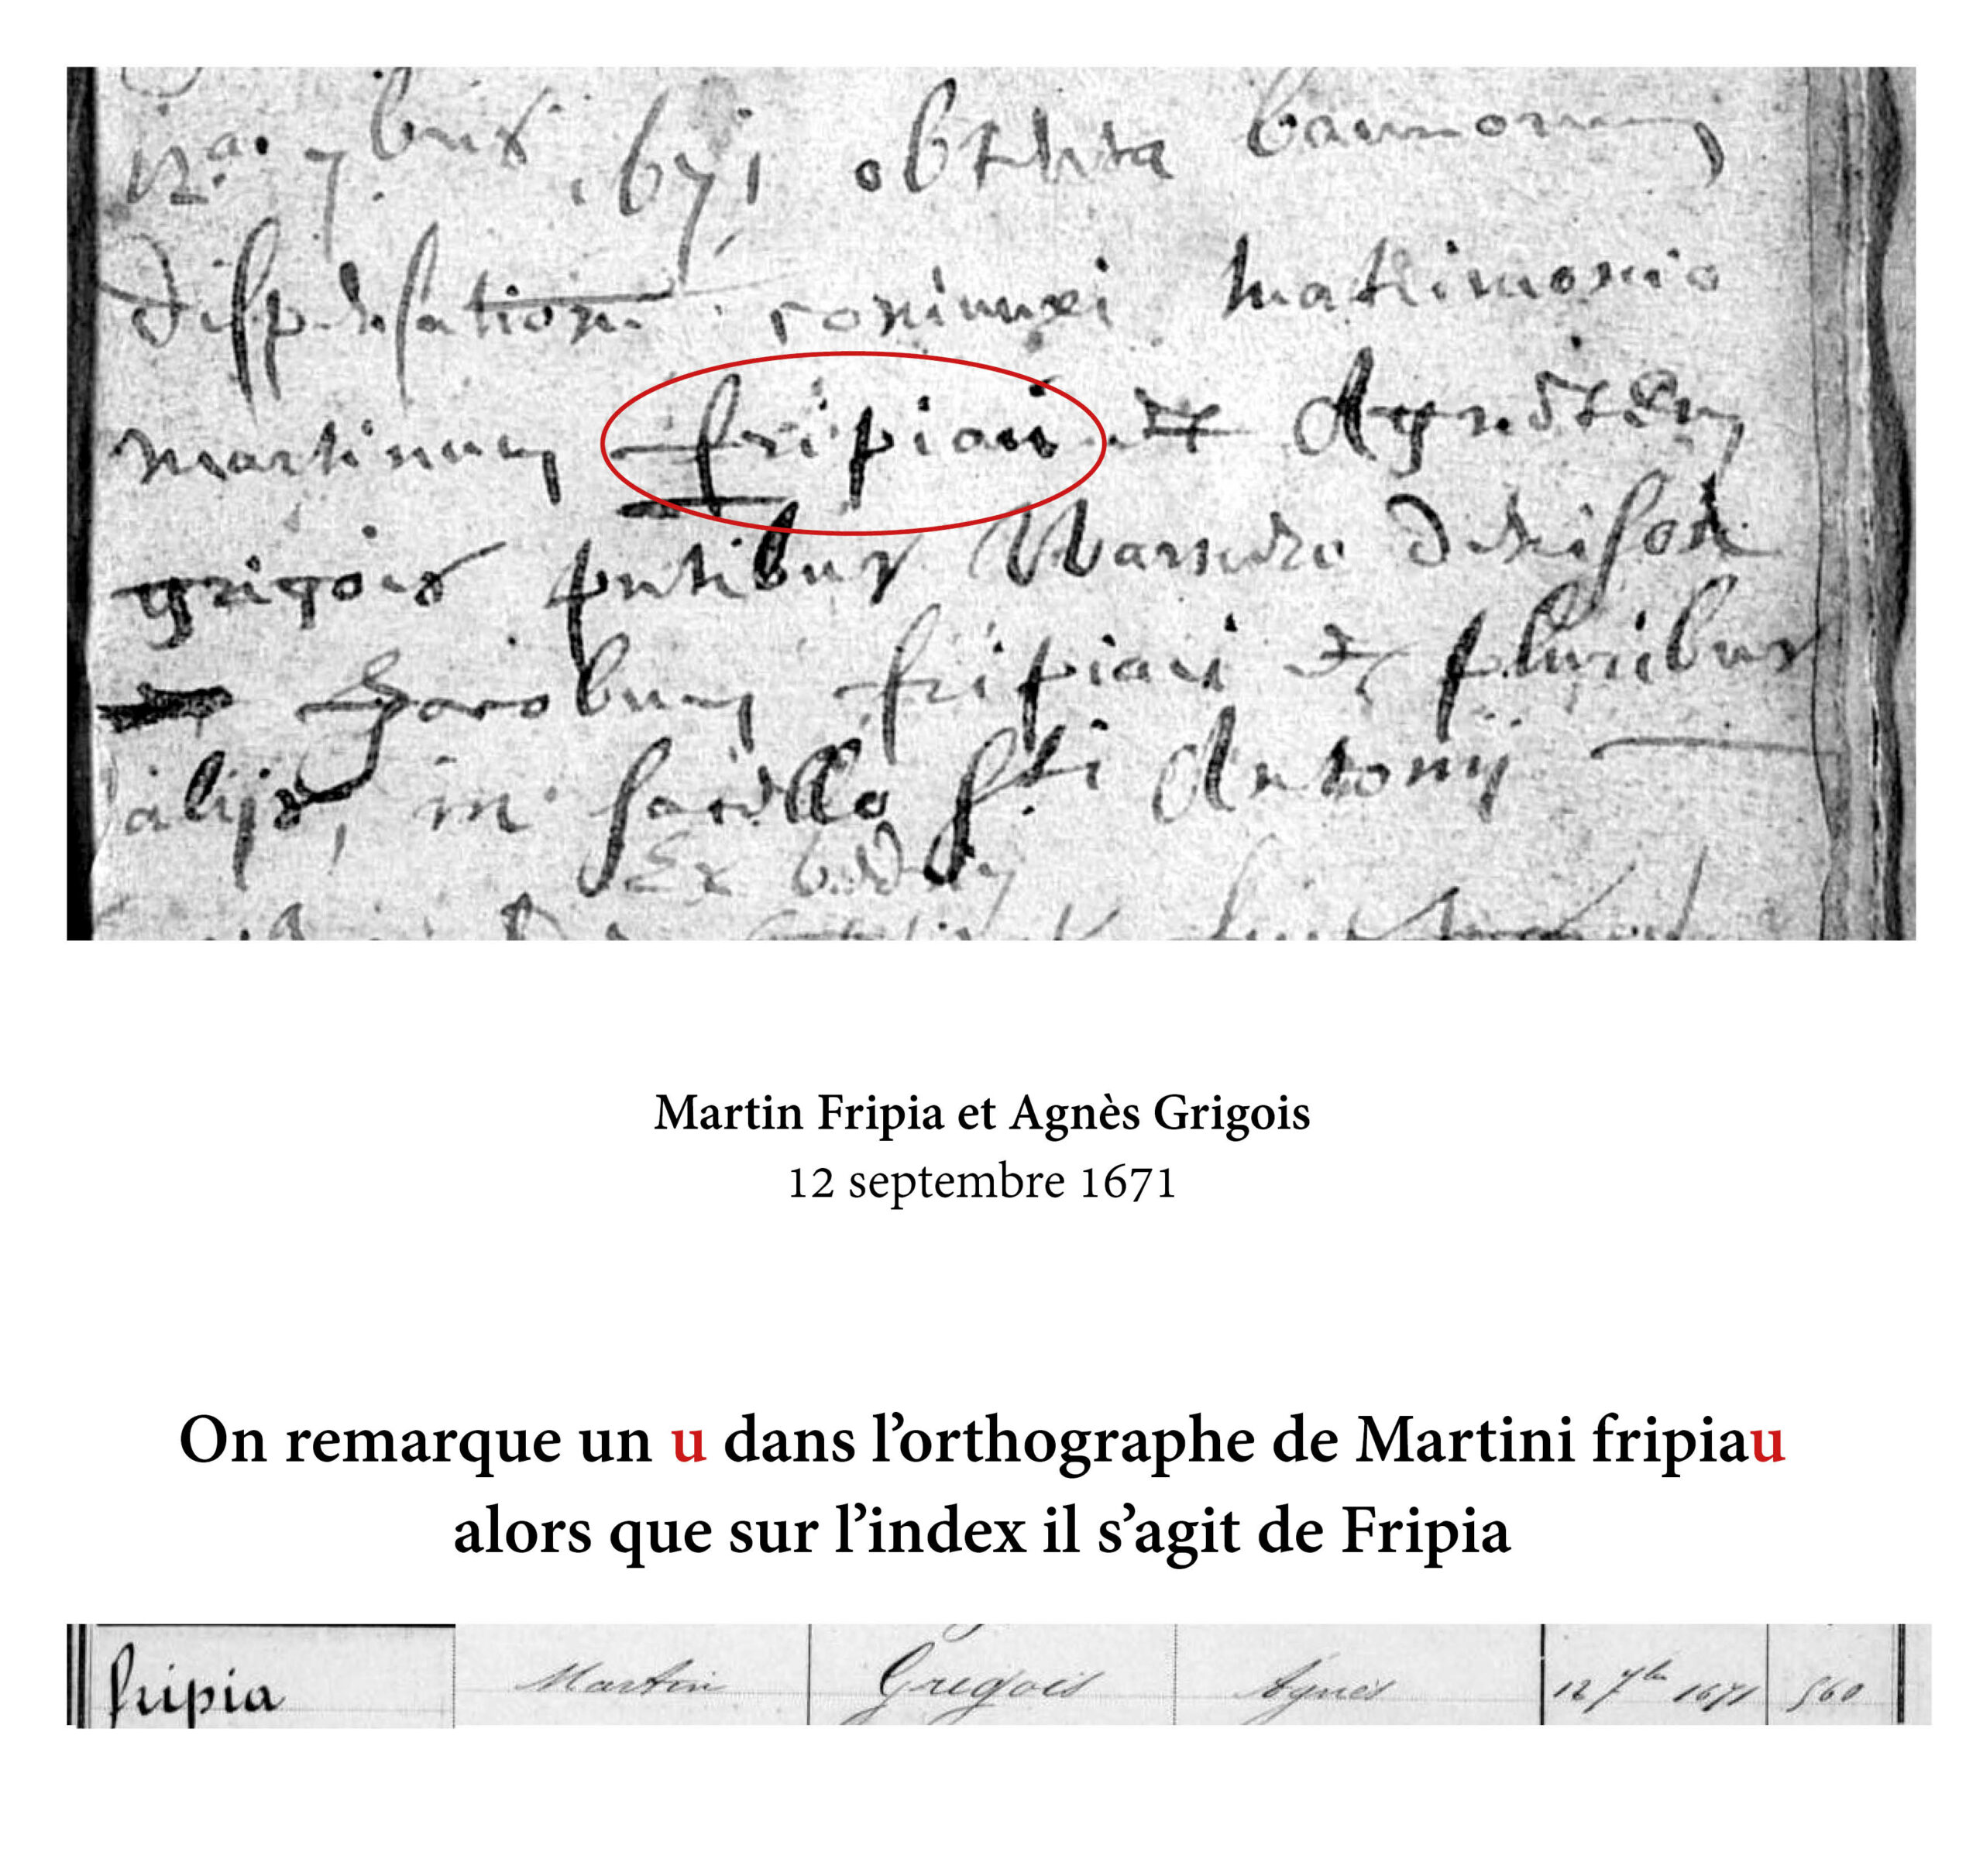 12a. 7bris 1671 obtenta bannorum
dispensatione coniunxi matrimonio
martinum fripiau et Agnetem
grigois pntibus
Jacobum fripiau et pluribus
alijs, in sacello sti Antonij
Martin Fripia et Agnès Grigois
12 septembre 1671
On remarque un u dans l’orthographe de Martini fripiau
alors que sur l’index il s’agit de Fripia
fripia Martin Gregois Agnes 12 7bre 1671 560